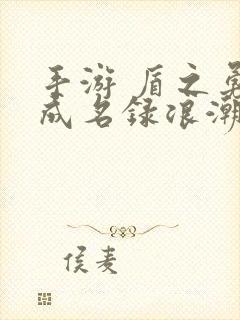 手游 盾之勇
成名录浪潮
侯麦